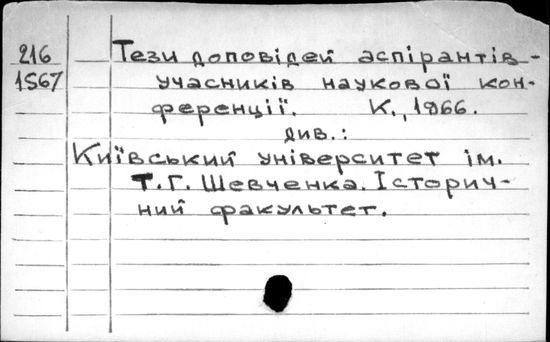 216
1567
Тези доповідей аспірантів-
учасників наукової кон-
ференції. К., 1966.
див.:
Київський університет ім.
Т.Г. Шевченка. Історич-
ний факультет.